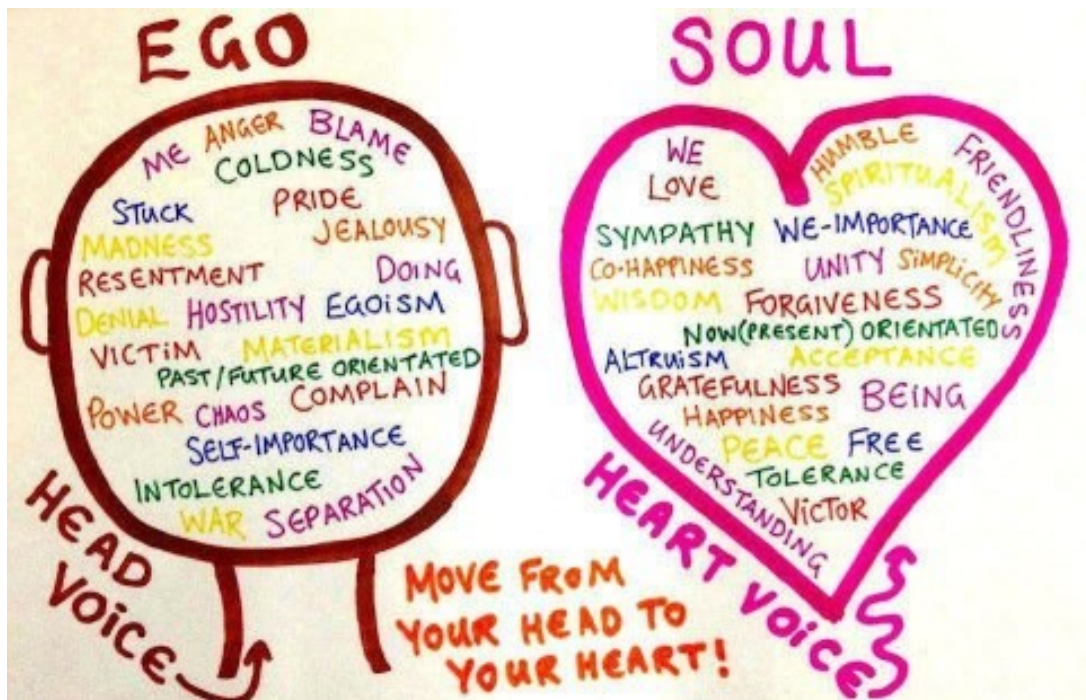 EGO
ME ANGER BLAME
COLDNESS
STUCK PRIDE
MADNESS JEALOUSY
RESENTMENT DOING
DENIAL HOSTILITY EGOiSM
VICTiM MATERIALISM
PAST/FUTURE ORIENTATED
POWER CHAOS COMPLAIN
SELF-IMPORTANCE
INTOLERANCE
WAR SEPARATION
HEAD
VOiCE
MOVE FROM
YOUR HEAD TO
YOUR HEART!
SOUL
WE HUMBLE FRIENDLINESS
LOVE SPIRITUALISM
SYMPATHY WE-IMPORTANCE
CO-HAPPINESS UNITY SiMPLiCiTY
WISDOM FORGIVENESS
NOW(PRESENT) ORIENTATED
ALTRUiSM ACCEPTANCE
GRATEFULNESS BEING
HAPPINESS
PEACE FREE
UNDERSTANDING TOLERANCE
ViCTOR
HEART VOiCE